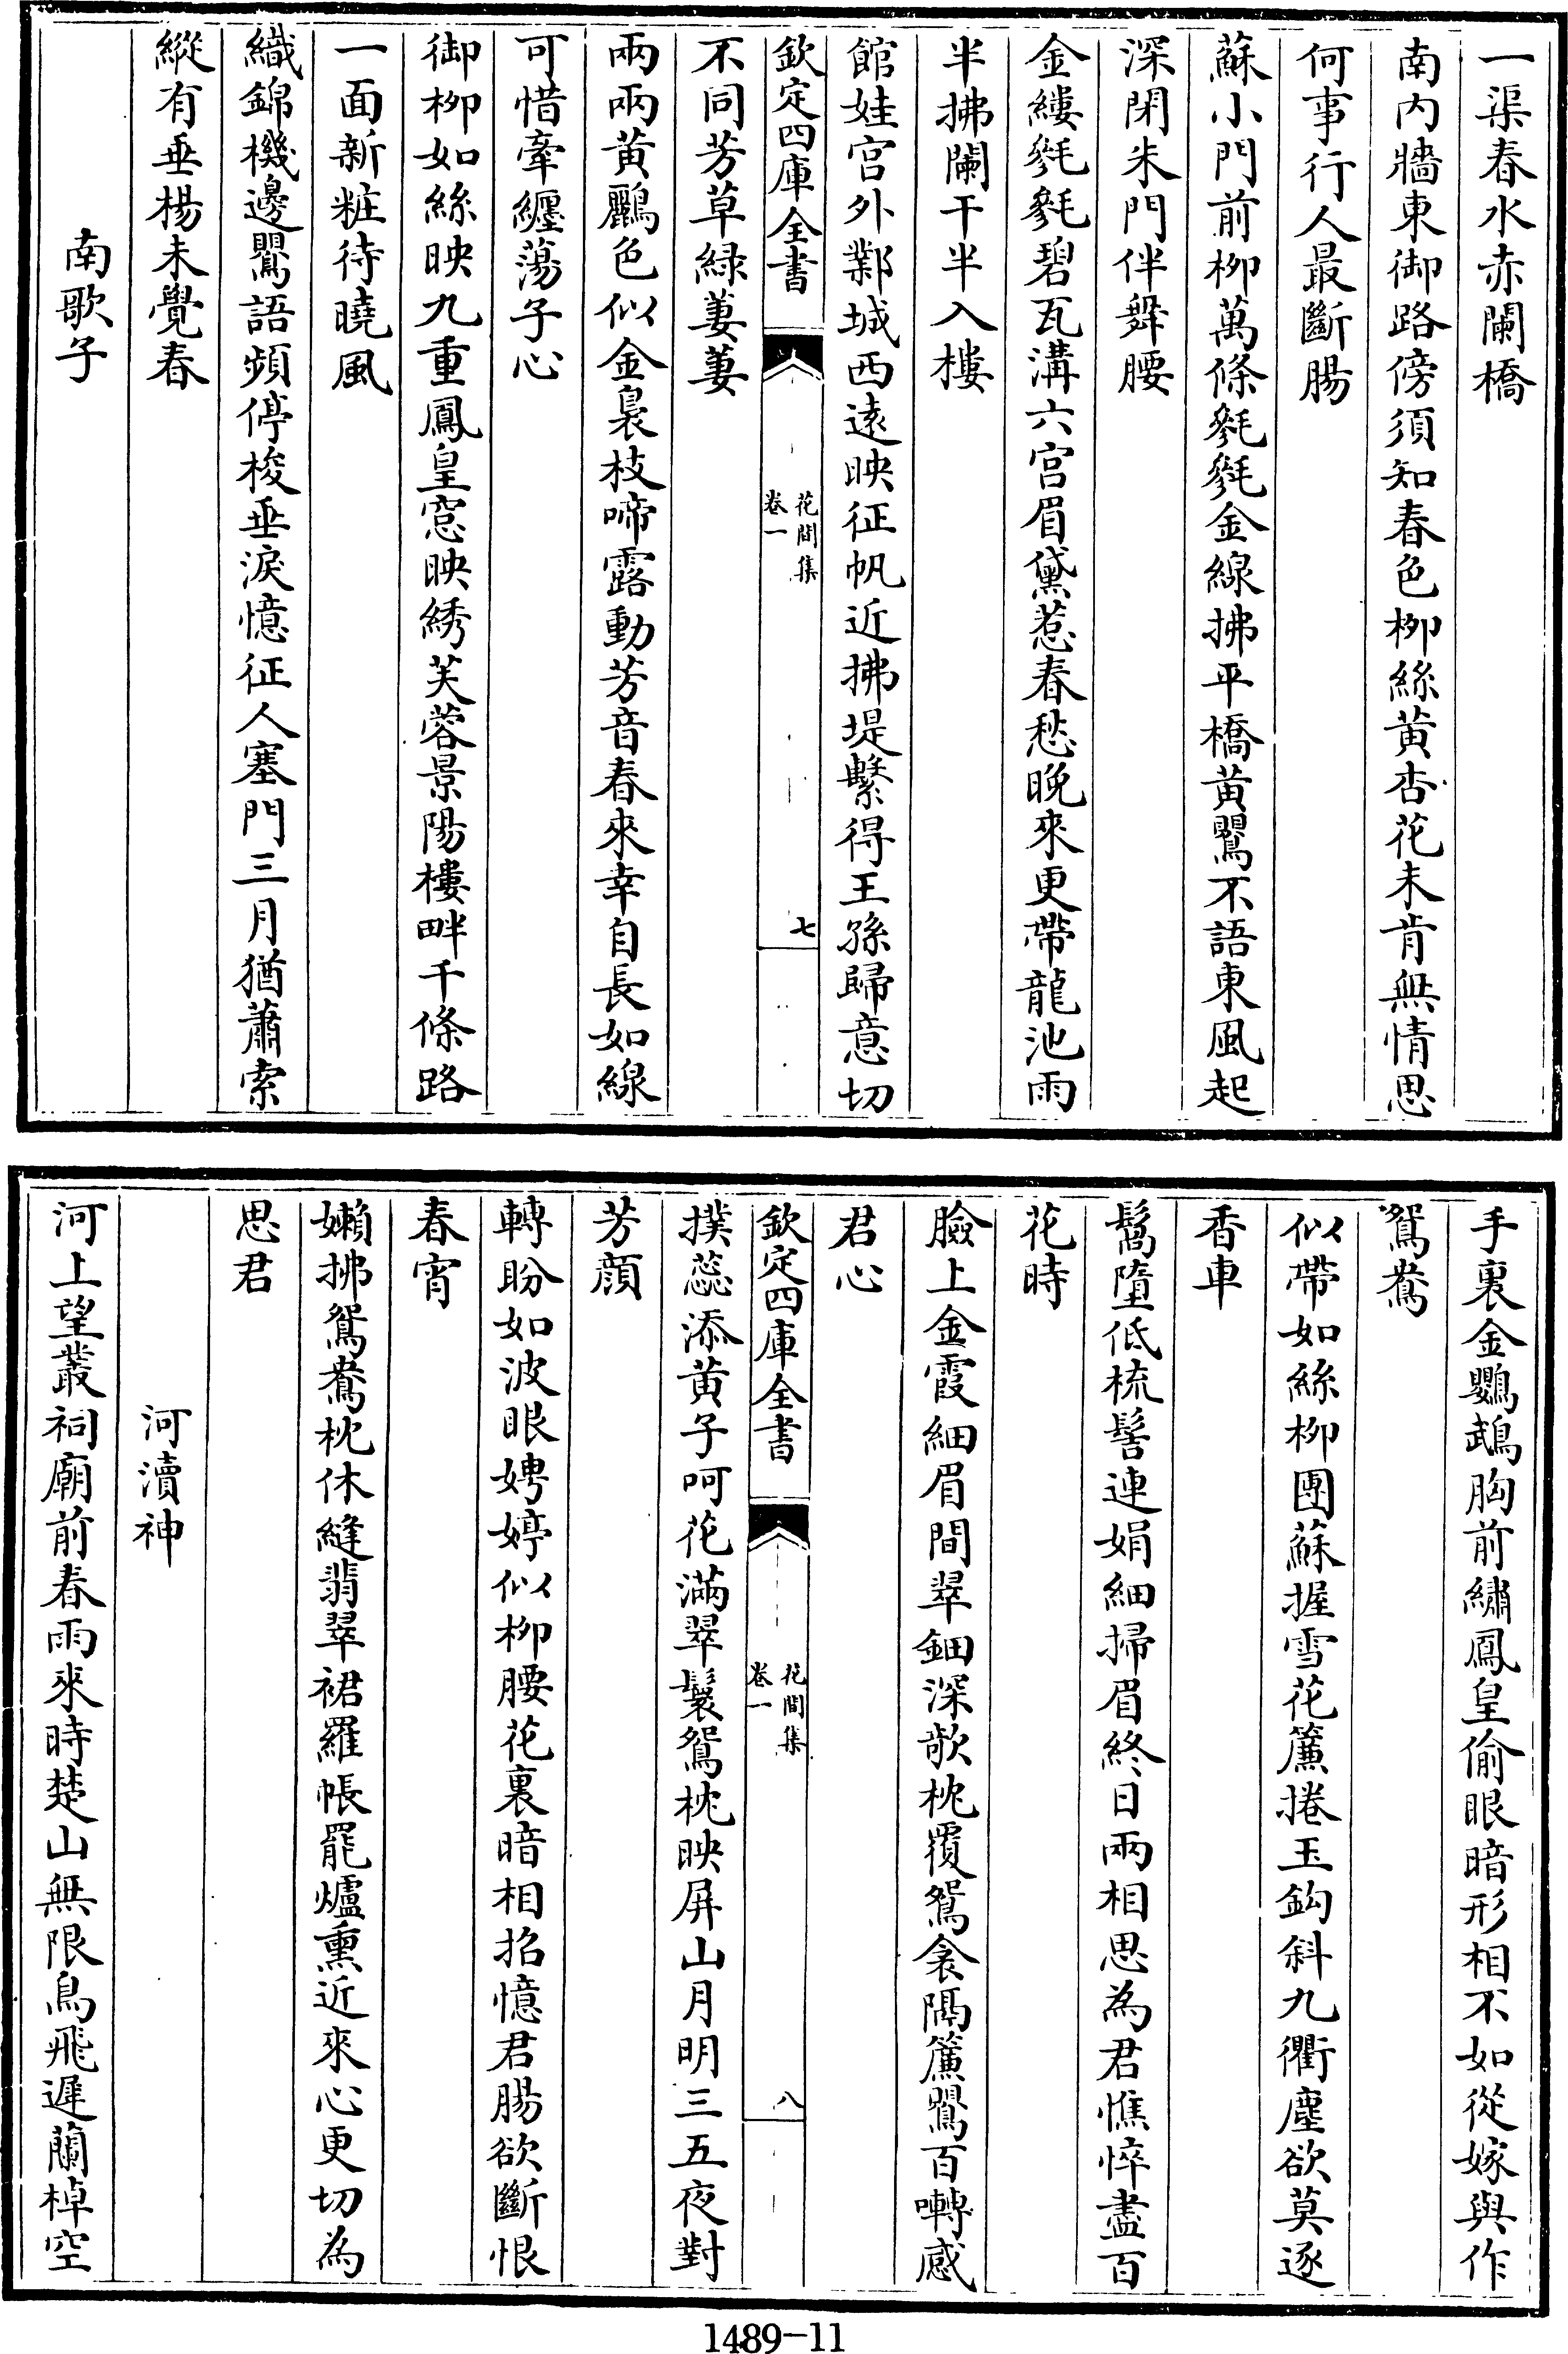 一渠春水赤闌橋
南内牆東御路傍須知春色柳絲黄杏花未肯無情思
何事行人最斷腸
蘇小門前柳萬條毿毿金線拂平橋黄鸎不語東風起
深閉朱門伴舞腰
金縷毿毿碧瓦溝六宫眉黛惹春愁晚來更帶龍池雨
半拂闌干半入樓
館娃宫外鄴城西逺映征帆近拂堤繫得王孫歸意切
欽定四庫全書
花間集
卷一
七
不同芳草緑萋萋
兩兩黄鸝色似金裊枝啼露動芳音春來幸自長如線
可惜牽纒蕩子心
御柳如絲映九重鳳皇窓映綉芙蓉景陽樓畔千條路
一面新粧待曉風
織錦機邊鸎語頻停梭垂淚憶征人塞門三月猶蕭索
縱有垂楊未覺春
南歌子
手裏金鸚鵡胸前繡鳳皇偷眼暗形相不如從嫁與作
鴛鴦
似帶如絲柳團蘇握雪花簾捲玉鈎斜九衢塵欲莫逐
香車
鬌墮低梳髻連娟細掃眉終日兩相思為君憔悴盡百
花時
臉上金霞細眉間翠鈿深欹枕覆鴛衾隔簾鸎百囀感
君心
欽定四庫全書
花間集
卷一
八
撲蕊添黄子呵花滿翠鬟鴛枕映屏山月明三五夜對
芳顔
轉盼如波眼娉婷似柳腰花裏暗相招憶君腸欲斷恨
春宵
嬾拂鴛鴦枕休縫翡翠裙羅帳罷爐熏近來心更切為
思君
河瀆神
河上望叢祠廟前春雨來時楚山無限鳥飛遲蘭棹空
1489-11